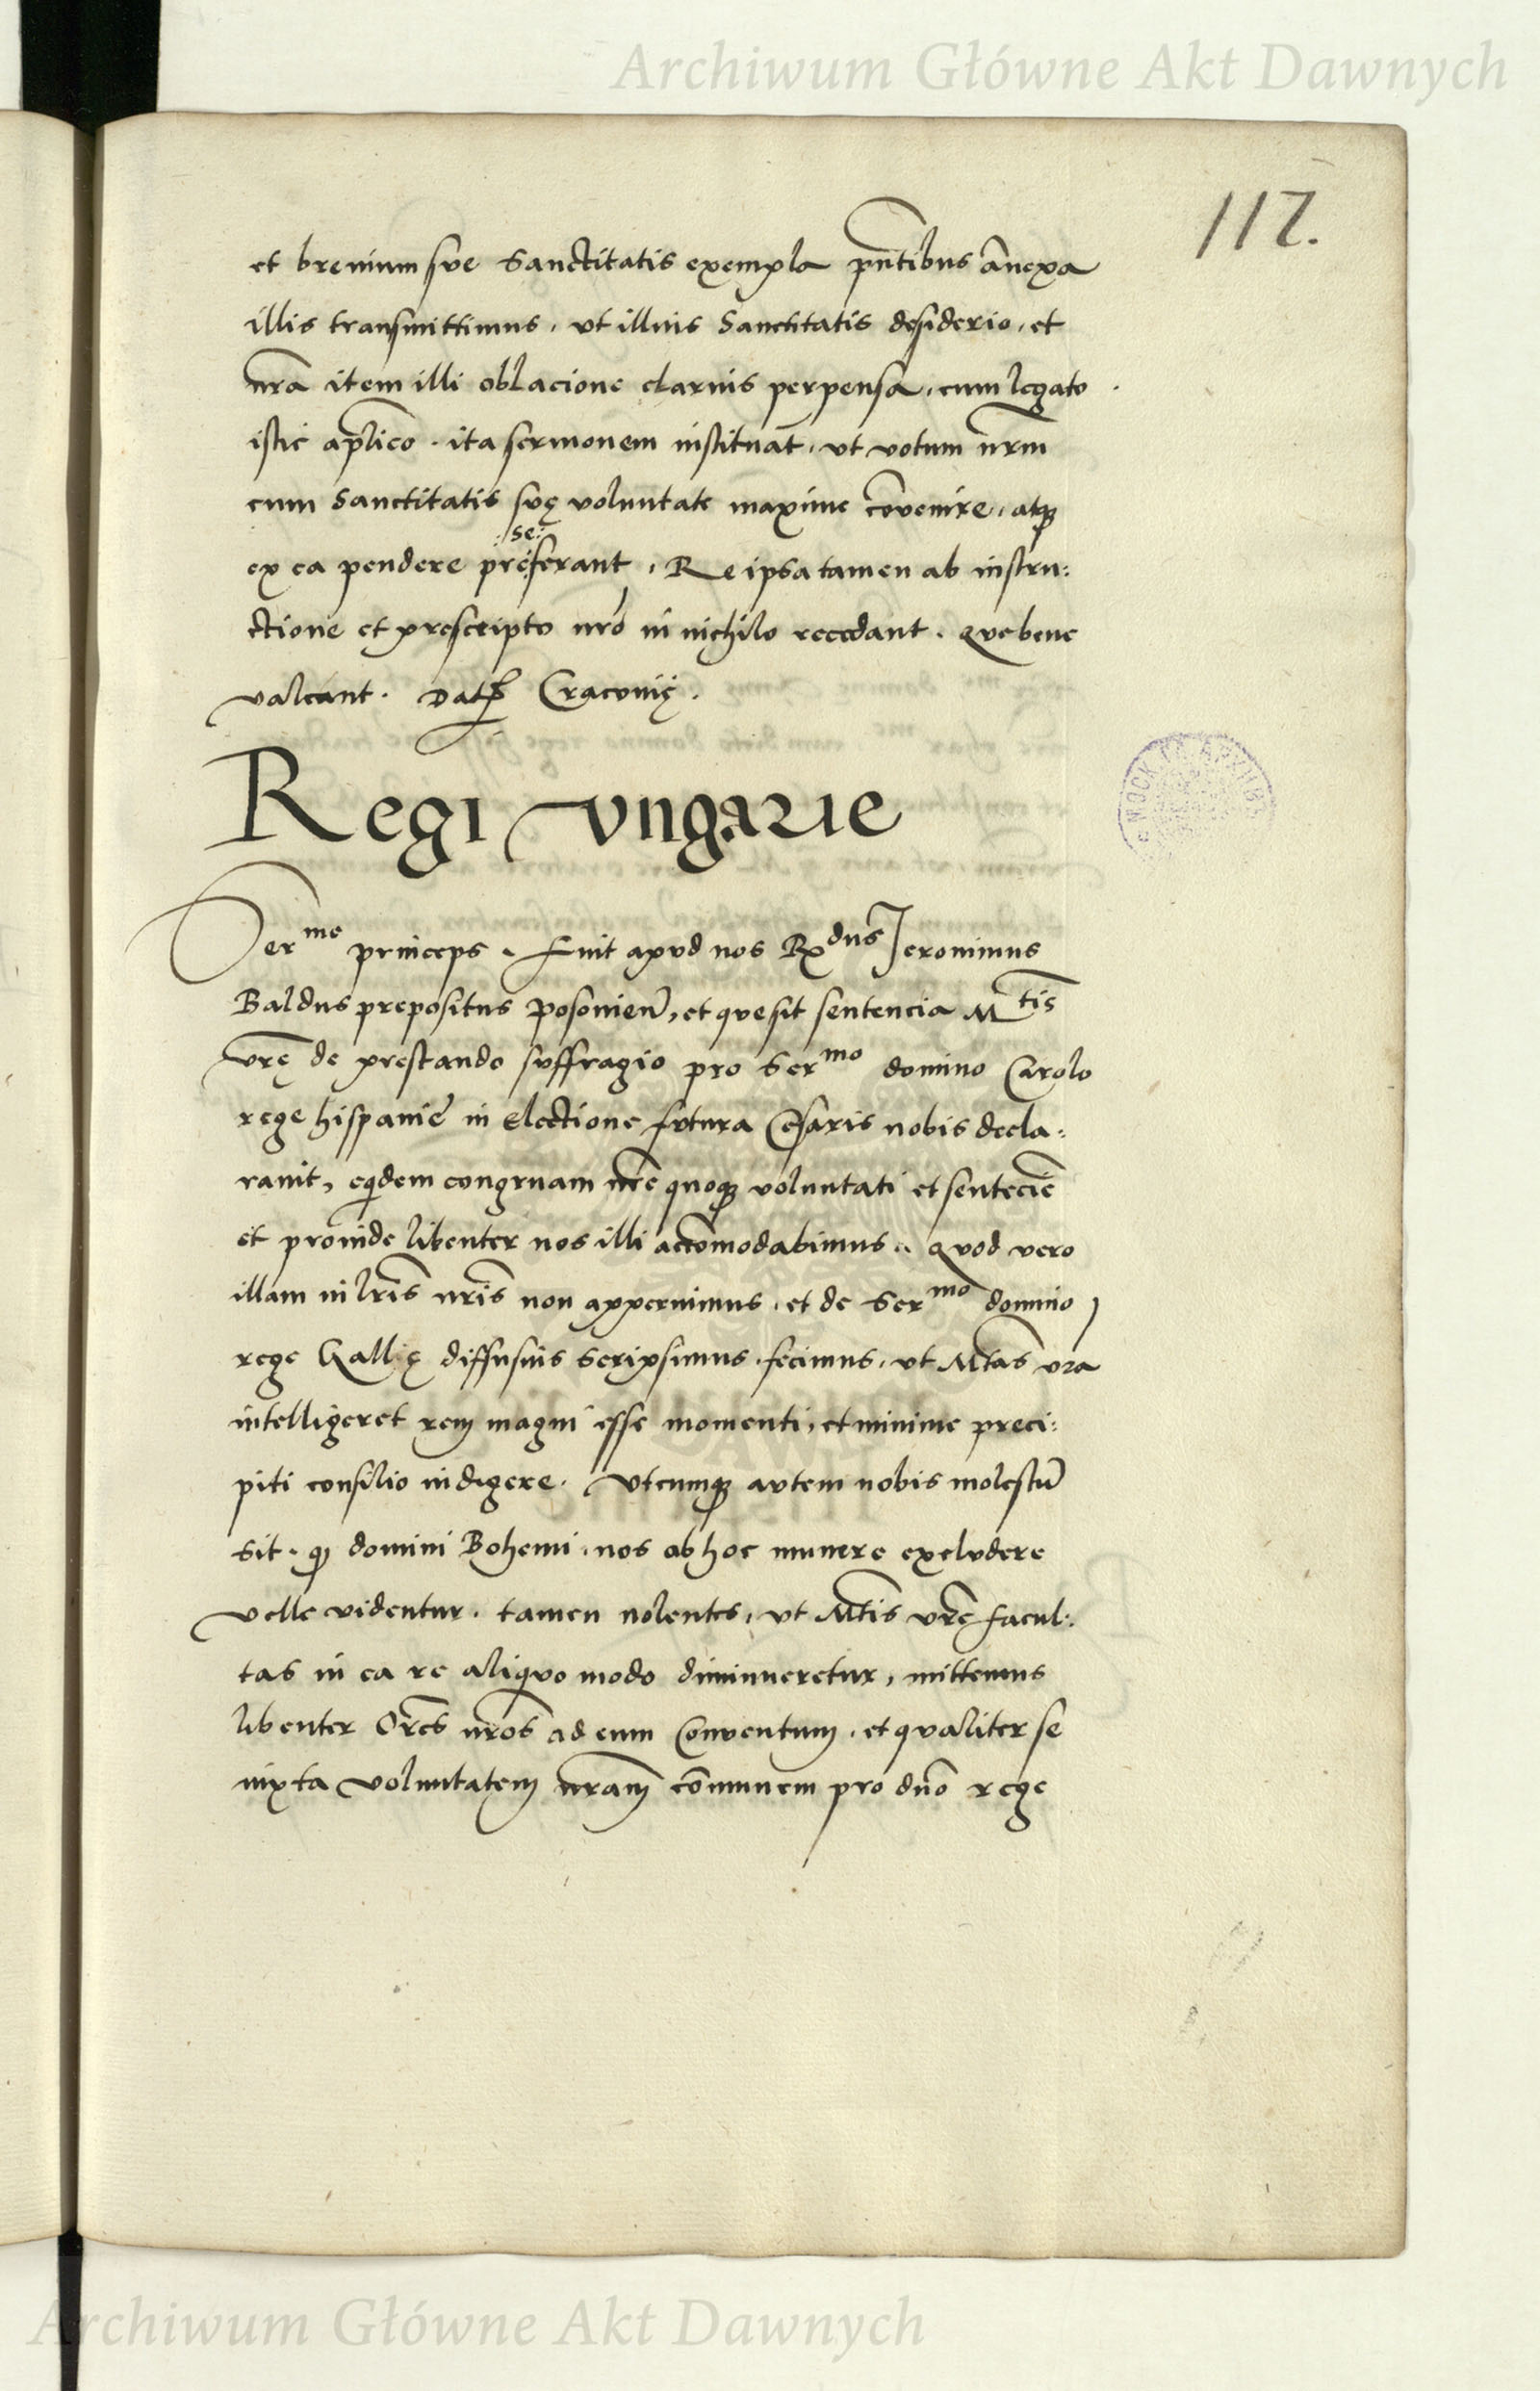 Archiwum Główne Akt Dawnych
117.
et brevium sve Sanctitatis exempla pn̄tibus ānexa
illis transmittimus, vt illius Sanctitatis desiderio, et
nr̄a item illi oblacione clarius perpensa, cum legato
istic ap̄lico. ita sermonem instituāt, vt votum nr̄m
cum Sanctitatis svę voluntate maxime cōvenire, atq̨
se
ex ea pendere preferant, Re ipsa tamen ab instru:
ctione et prescripto nr̄o in nichilo recedant. qve bene
valeant. Dat Craconię.
Regi vngarie
Serme princeps. Fuit apvd nos Rdus Jeronimus
Baldus prepositus posonien̄, et qvesit sentencia Mtis
vr̄ę de prestando svffragio pro Sermo domino Carolo
rege hispanie in Electione fvtura Cęsaris nobis decla:
ravit, eqidem congruam nr̄e quoq̨ voluntati et sentēcie
et proinde libenter nos illi accōmodabimus. qvod vero
illam in lr̄is nr̄is non appervimus, et de Sermo domino
rege Gallię diffusius scripsimus, fecimus, vt Mtas vr̄a
intelligeret rem magni esse momenti, et minime preci:
piti consilio indigere. vtcumq̨ avtem nobis molestū
sit. q domini Bohemi, nos ab hoc munere exclvdere
velle videntur. tamen nolentes, vt Mtis vr̄e facul:
tas in ea re aliqvo modo diminueretur, mittemus
libenter Or̄es nr̄os ad eum Conventum, et qvaliter se
iuxta voluntatem nr̄am cōmunem pro dn̄o rege
Archiwum Główne Akt Dawnych